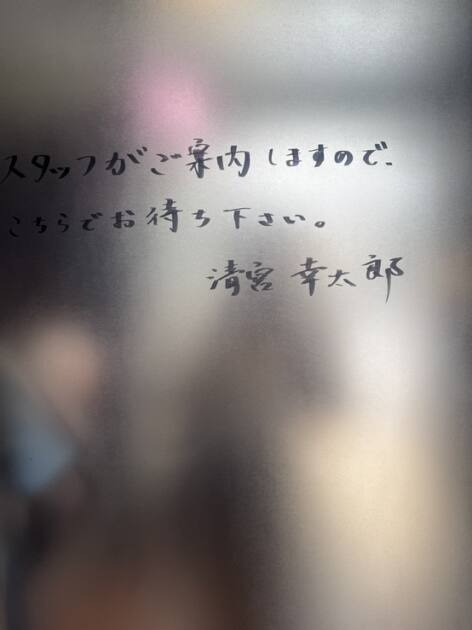 スタッフがご案内しますので、
こちらでお待ち下さい。
清宮 幸太郎